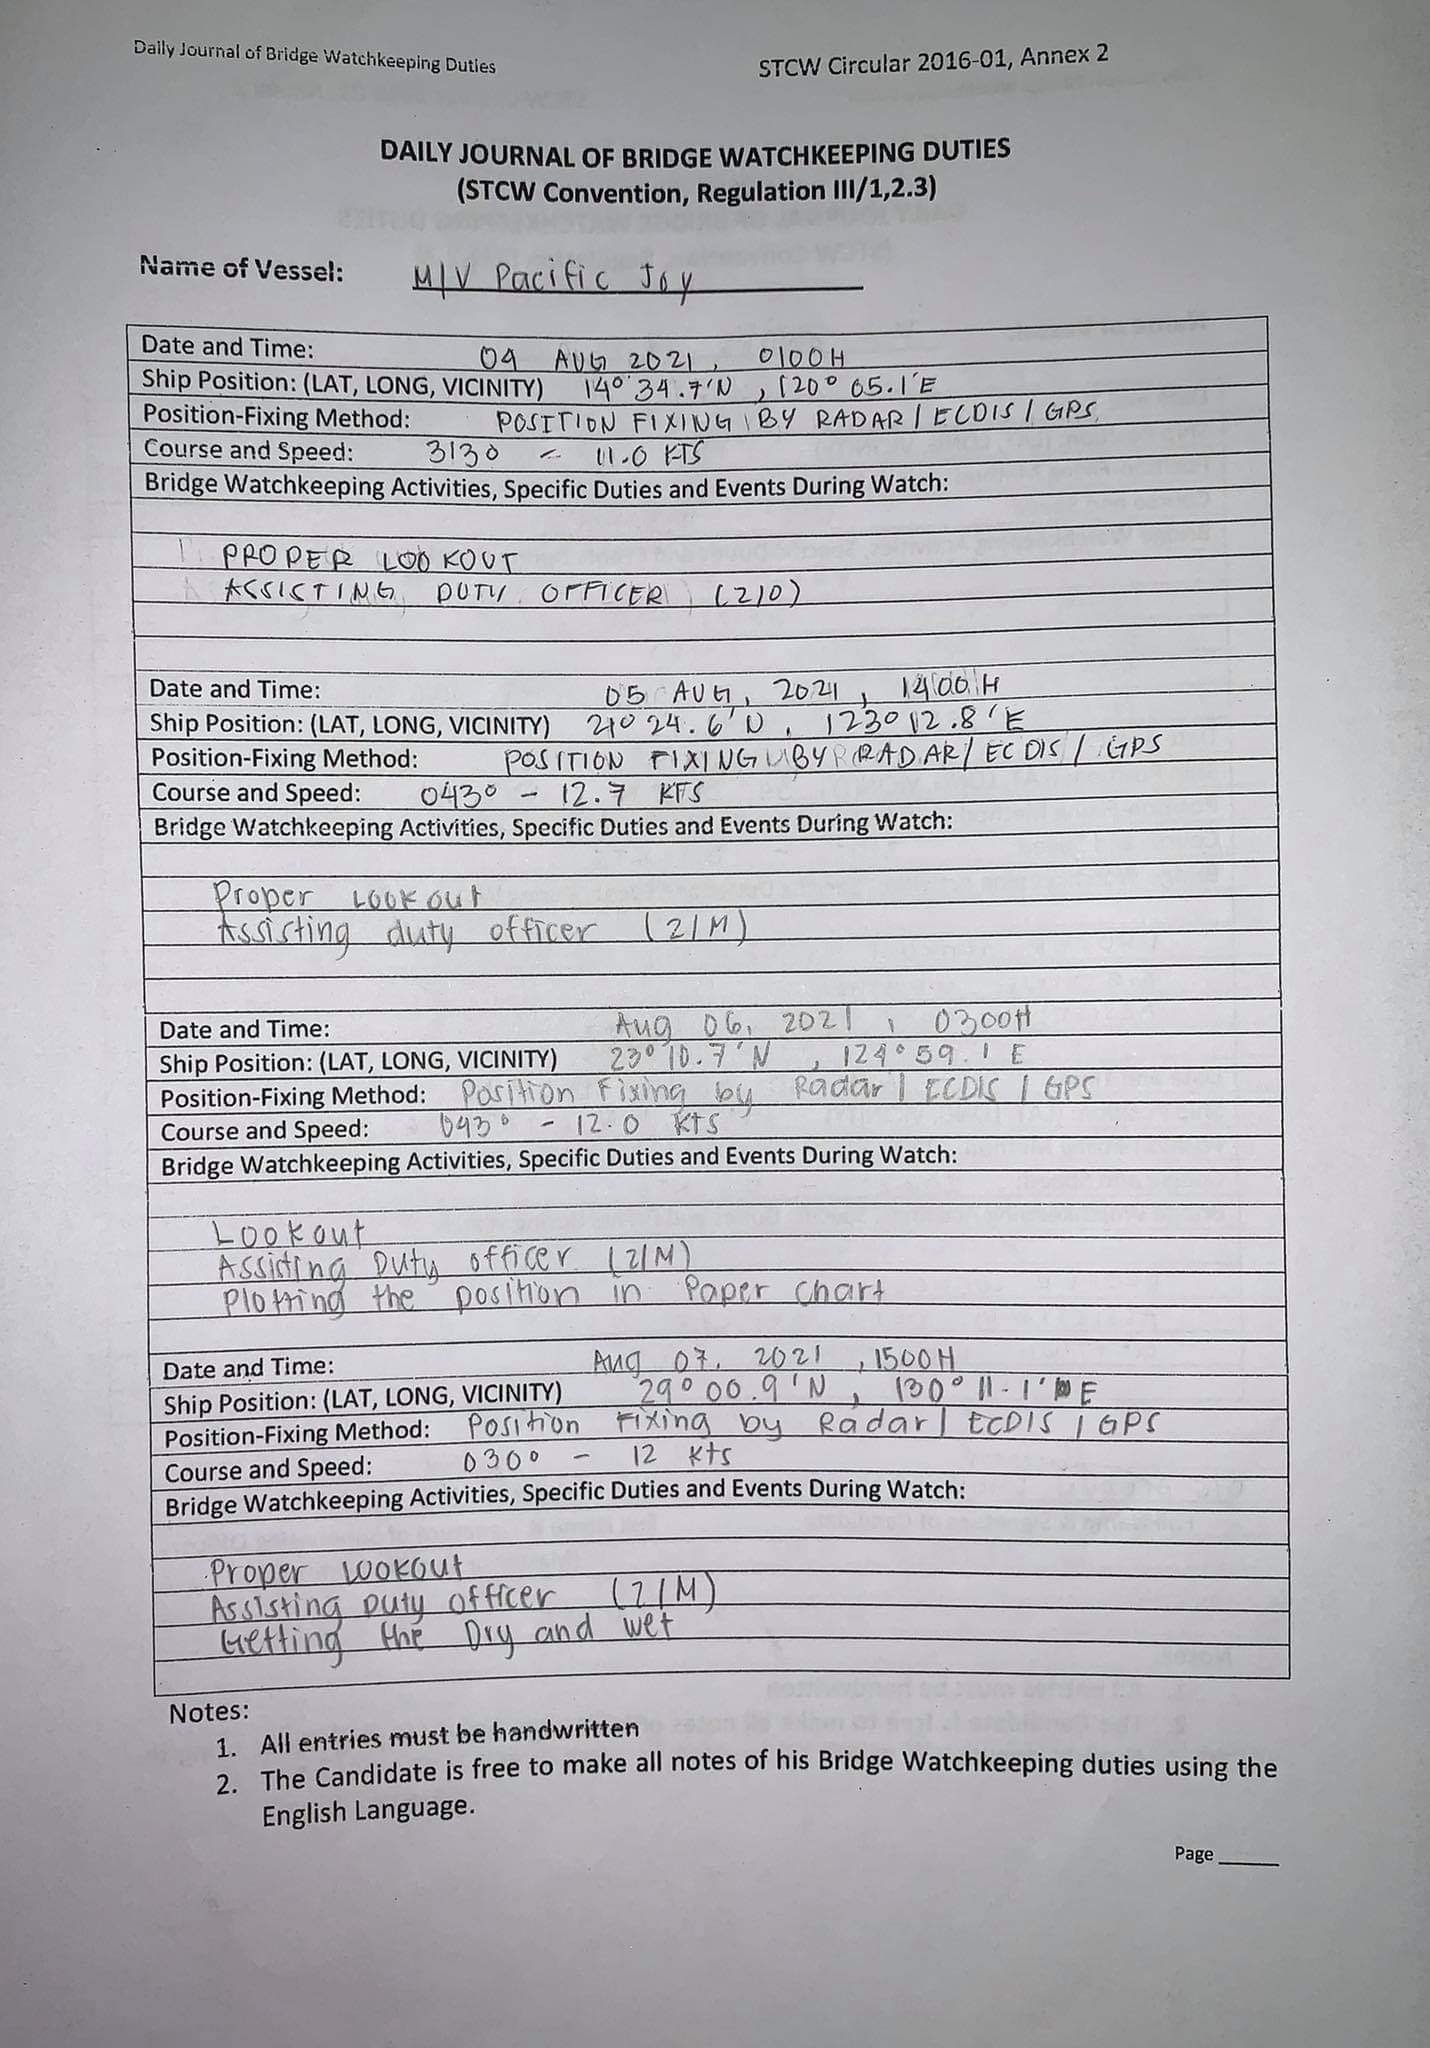 Daily Journal of Bridge Watchkeeping Duties
STCW Circular 2016-01, Annex 2
DAILY JOURNAL OF BRIDGE WATCHKEEPING DUTIES
(STCW Convention, Regulation III/1,2.3)
Name of Vessel: M/V Pacific Joy
Date and Time: 04 AUG 2021, 0100H
Ship Position: (LAT, LONG, VICINITY) 14° 34.7'N, 120° 05.1'E
Position-Fixing Method: POSITION FIXING BY RADAR / ECDIS / GPS
Course and Speed: 313° - 11.0 KTS
Bridge Watchkeeping Activities, Specific Duties and Events During Watch:
PROPER LOOKOUT
ASSISTING DUTY OFFICER (2/O)
Date and Time: 05 AUG, 2021, 1400H
Ship Position: (LAT, LONG, VICINITY) 21° 24.6'N, 123° 12.8'E
Position-Fixing Method: POSITION FIXING BY RADAR / ECDIS / GPS
Course and Speed: 043° - 12.7 KTS
Bridge Watchkeeping Activities, Specific Duties and Events During Watch:
Proper Lookout
Assisting duty officer (2/M)
Date and Time: Aug 06, 2021, 0300H
Ship Position: (LAT, LONG, VICINITY) 23° 10.7'N, 124° 59.1 E
Position-Fixing Method: Position Fixing by Radar / ECDIS / GPS
Course and Speed: 043° - 12.0 kts
Bridge Watchkeeping Activities, Specific Duties and Events During Watch:
Lookout
Assisting Duty officer (2/M)
Plotting the position in Paper chart
Date and Time: Aug 07, 2021, 1500H
Ship Position: (LAT, LONG, VICINITY) 29° 00.9'N, 130° 11.1' E
Position-Fixing Method: Position Fixing by Radar / ECDIS / GPS
Course and Speed: 030° - 12 kts
Bridge Watchkeeping Activities, Specific Duties and Events During Watch:
Proper Lookout
Assisting Duty officer (2/M)
Getting the Dry and wet
Notes:
1. All entries must be handwritten
2. The Candidate is free to make all notes of his Bridge Watchkeeping duties using the
English Language.
Page